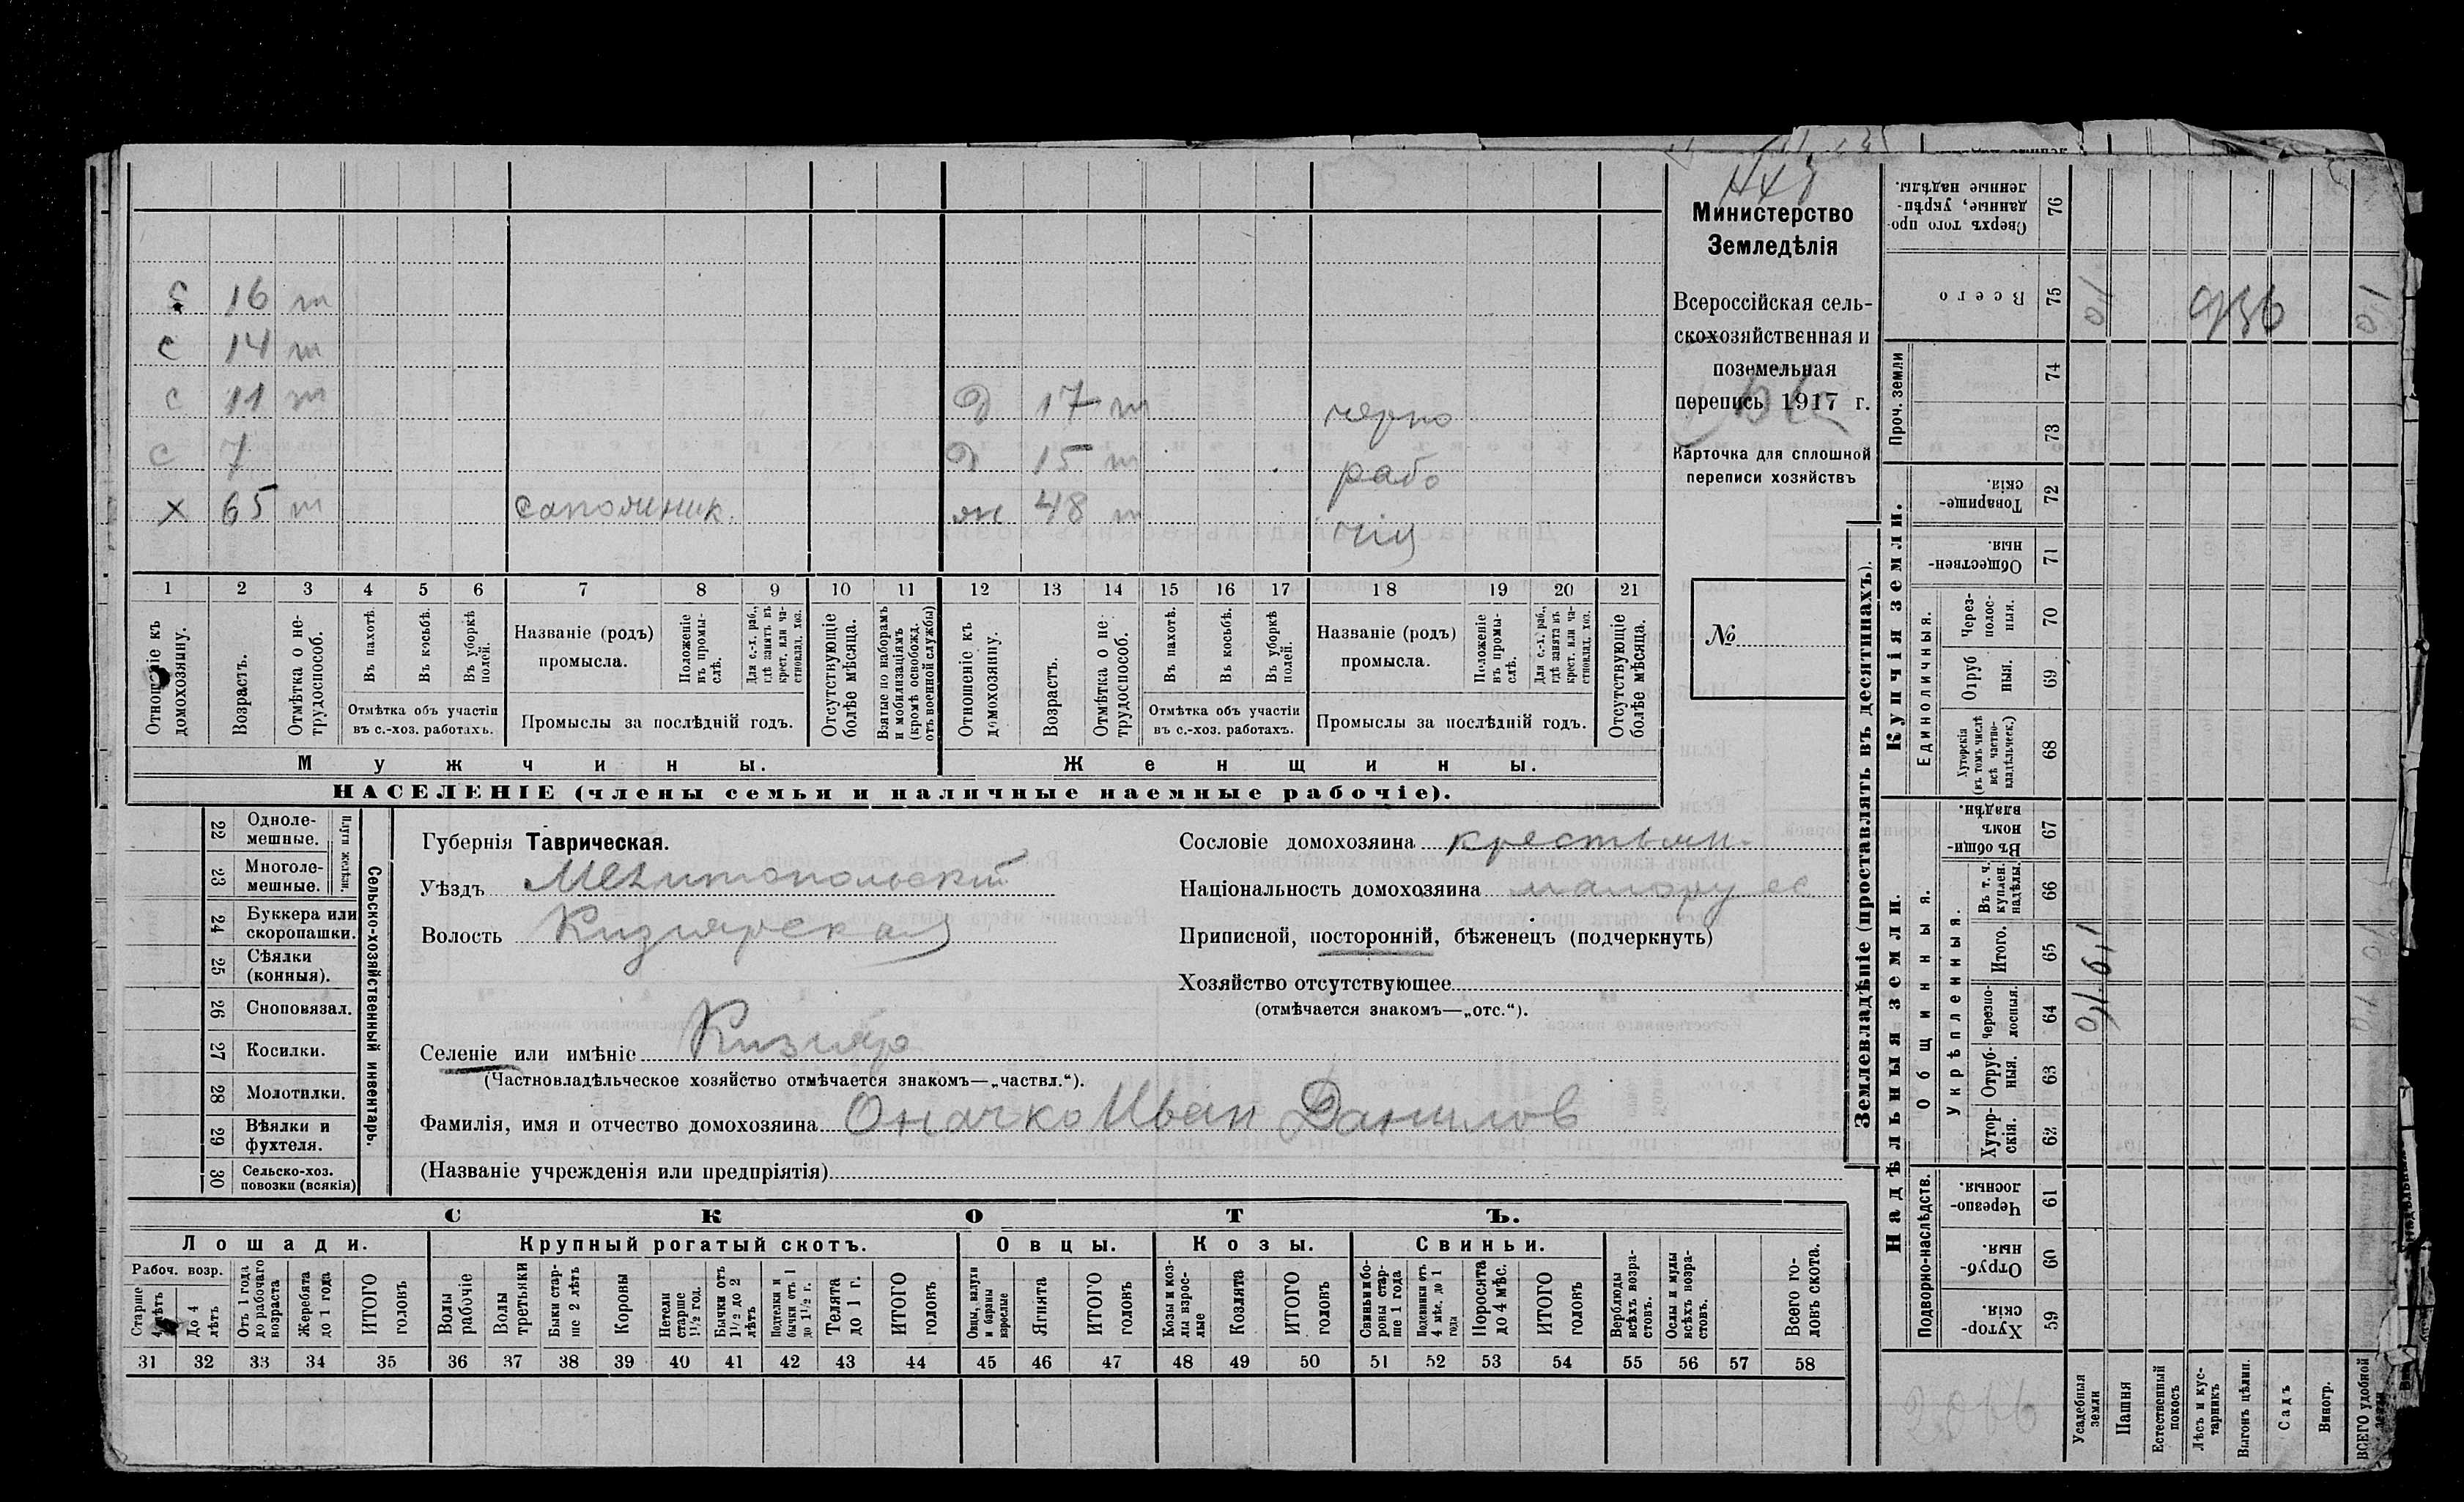 Министерство
Земледѣлія
Всероссійская сель-
скохозяйственная и
поземельная
перепись 1917 г.
Карточка для сплошной
переписи хозяйствъ
№
С 16 т
С 14 т
С 11 т Д 17 т черно
С 7 Д 15 т рабо
Х 65 т сапожник. ж 48 т чія
1 2 3 4 5 6 7 8 9 10 11 12 13 14 15 16 17 18 19 20 21
Отношеніе къ домохозяину.
Возрастъ.
Отмѣтка о не-трудоспособ.
Въ пахотѣ.
Въ косьбѣ.
Въ уборкѣ полей.
Отмѣтка объ участіи
въ с.-хоз. работахъ.
Названіе (родъ)
промысла.
Положеніе въ промы-слѣ.
Для с.-х. раб., гдѣ занятъ въ крест. или ча-стновлад. хоз.
Промыслы за послѣдній годъ.
Отсутствующіе болѣе мѣсяца.
Взятые по наборамъ и мобилизаціямъ (кромѣ освобожд. отъ военной службы)
Отношеніе къ домохозяину.
Возрастъ.
Отмѣтка о не-трудоспособ.
Въ пахотѣ.
Въ косьбѣ.
Въ уборкѣ полей.
Отмѣтка объ участіи
въ с.-хоз. работахъ.
Названіе (родъ)
промысла.
Положеніе въ промы-слѣ.
Для с.-х. раб., гдѣ занята въ крест. или ча-стновлад. хоз.
Промыслы за послѣдній годъ.
Отсутствующіе болѣе мѣсяца.
Мужчины. Женщины.
НАСЕЛЕНІЕ (члены семьи и наличные наемные рабочіе).
Сельско-хозяйственный инвентарь.
Плуги желѣзн.
22 Одноле-мешные.
23 Многоле-мешные.
24 Буккера или скоропашки.
25 Сѣялки (конныя).
26 Сноповязал.
27 Косилки.
28 Молотилки.
29 Вѣялки и фухтеля.
30 Сельско-хоз. повозки (всякія)
Губернія Таврическая.
Уѣздъ Мелитопольский
Волость Кизиярская
Селеніе или имѣніе Кизияр
(Частновладѣльческое хозяйство отмѣчается знакомъ—„частвл.“).
Фамилія, имя и отчество домохозяина Оначко Иван Данилов
(Названіе учрежденія или предпріятія)
Сословіе домохозяина крестьян.
Національность домохозяина малорус
Приписной, посторонній, бѣженецъ (подчеркнуть)
Хозяйство отсутствующее
(отмѣчается знакомъ—„отс.“).
СКОТЪ.
Лошади. Крупный рогатый скотъ. Овцы. Козы. Свиньи.
Рабоч. возр.
Старше 4 лѣтъ
До 4 лѣтъ
Отъ 1 года до рабочаго возраста
Жеребята до 1 года
ИТОГО головъ
Волы рабочіе
Волы третьяки
Быки стар-ше 2 лѣтъ
Коровы
Нетели старше 1½ год.
Бычки отъ 1½ до 2 лѣтъ
Подтелки и бычки отъ 1 до 1½ г.
Телята до 1 г.
ИТОГО головъ
Овцы, валухи и бараны взрослые
Ягнята
ИТОГО головъ
Козы и коз-лы взрос-лые
Козлята
ИТОГО головъ
Свиньи и бо-ровы стар-ше 1 года
Подсвинки отъ 4 мѣс. до 1 года
Поросята до 4 мѣс.
ИТОГО головъ
Верблюды всѣхъ возра-стовъ.
Ослы и мулы всѣхъ возра-стовъ.
Всего го-ловъ скота.
31 32 33 34 35 36 37 38 39 40 41 42 43 44 45 46 47 48 49 50 51 52 53 54 55 56 57 58
Землевладѣніе (проставлять въ десятинахъ).
Надѣльныя земли. Купчія земли. Проч. земли
Подворно-наслѣдств.
Общинныя.
Укрѣпленныя.
Единоличныя.
Хутор-скія. 59
Отруб-ныя. 60
Черезпо-лосныя. 61
Хутор-скія. 62
Отруб-ныя. 63
Черезпо-лосныя. 64
Итого. 65
Въ т. ч. куплен. надѣлы. 66
Въ общи-номъ владѣн. 67
Хуторскія (въ томъ числѣ всѣ частно-владѣльческ.) 68
Отруб ныя. 69
Через-полос-ныя. 70
Обществен-ныя. 71
Товарище-скія. 72
73
74
Всего 75
Сверхъ того про-данные, укрѣп-ленные надѣлы. 76
Усадебныя земли
Пашня
Естественный покосъ
Лѣсъ и кус-тарникъ
Выгонъ цѣлин.
Садъ
Виногр.
ВСЕГО удобной земли